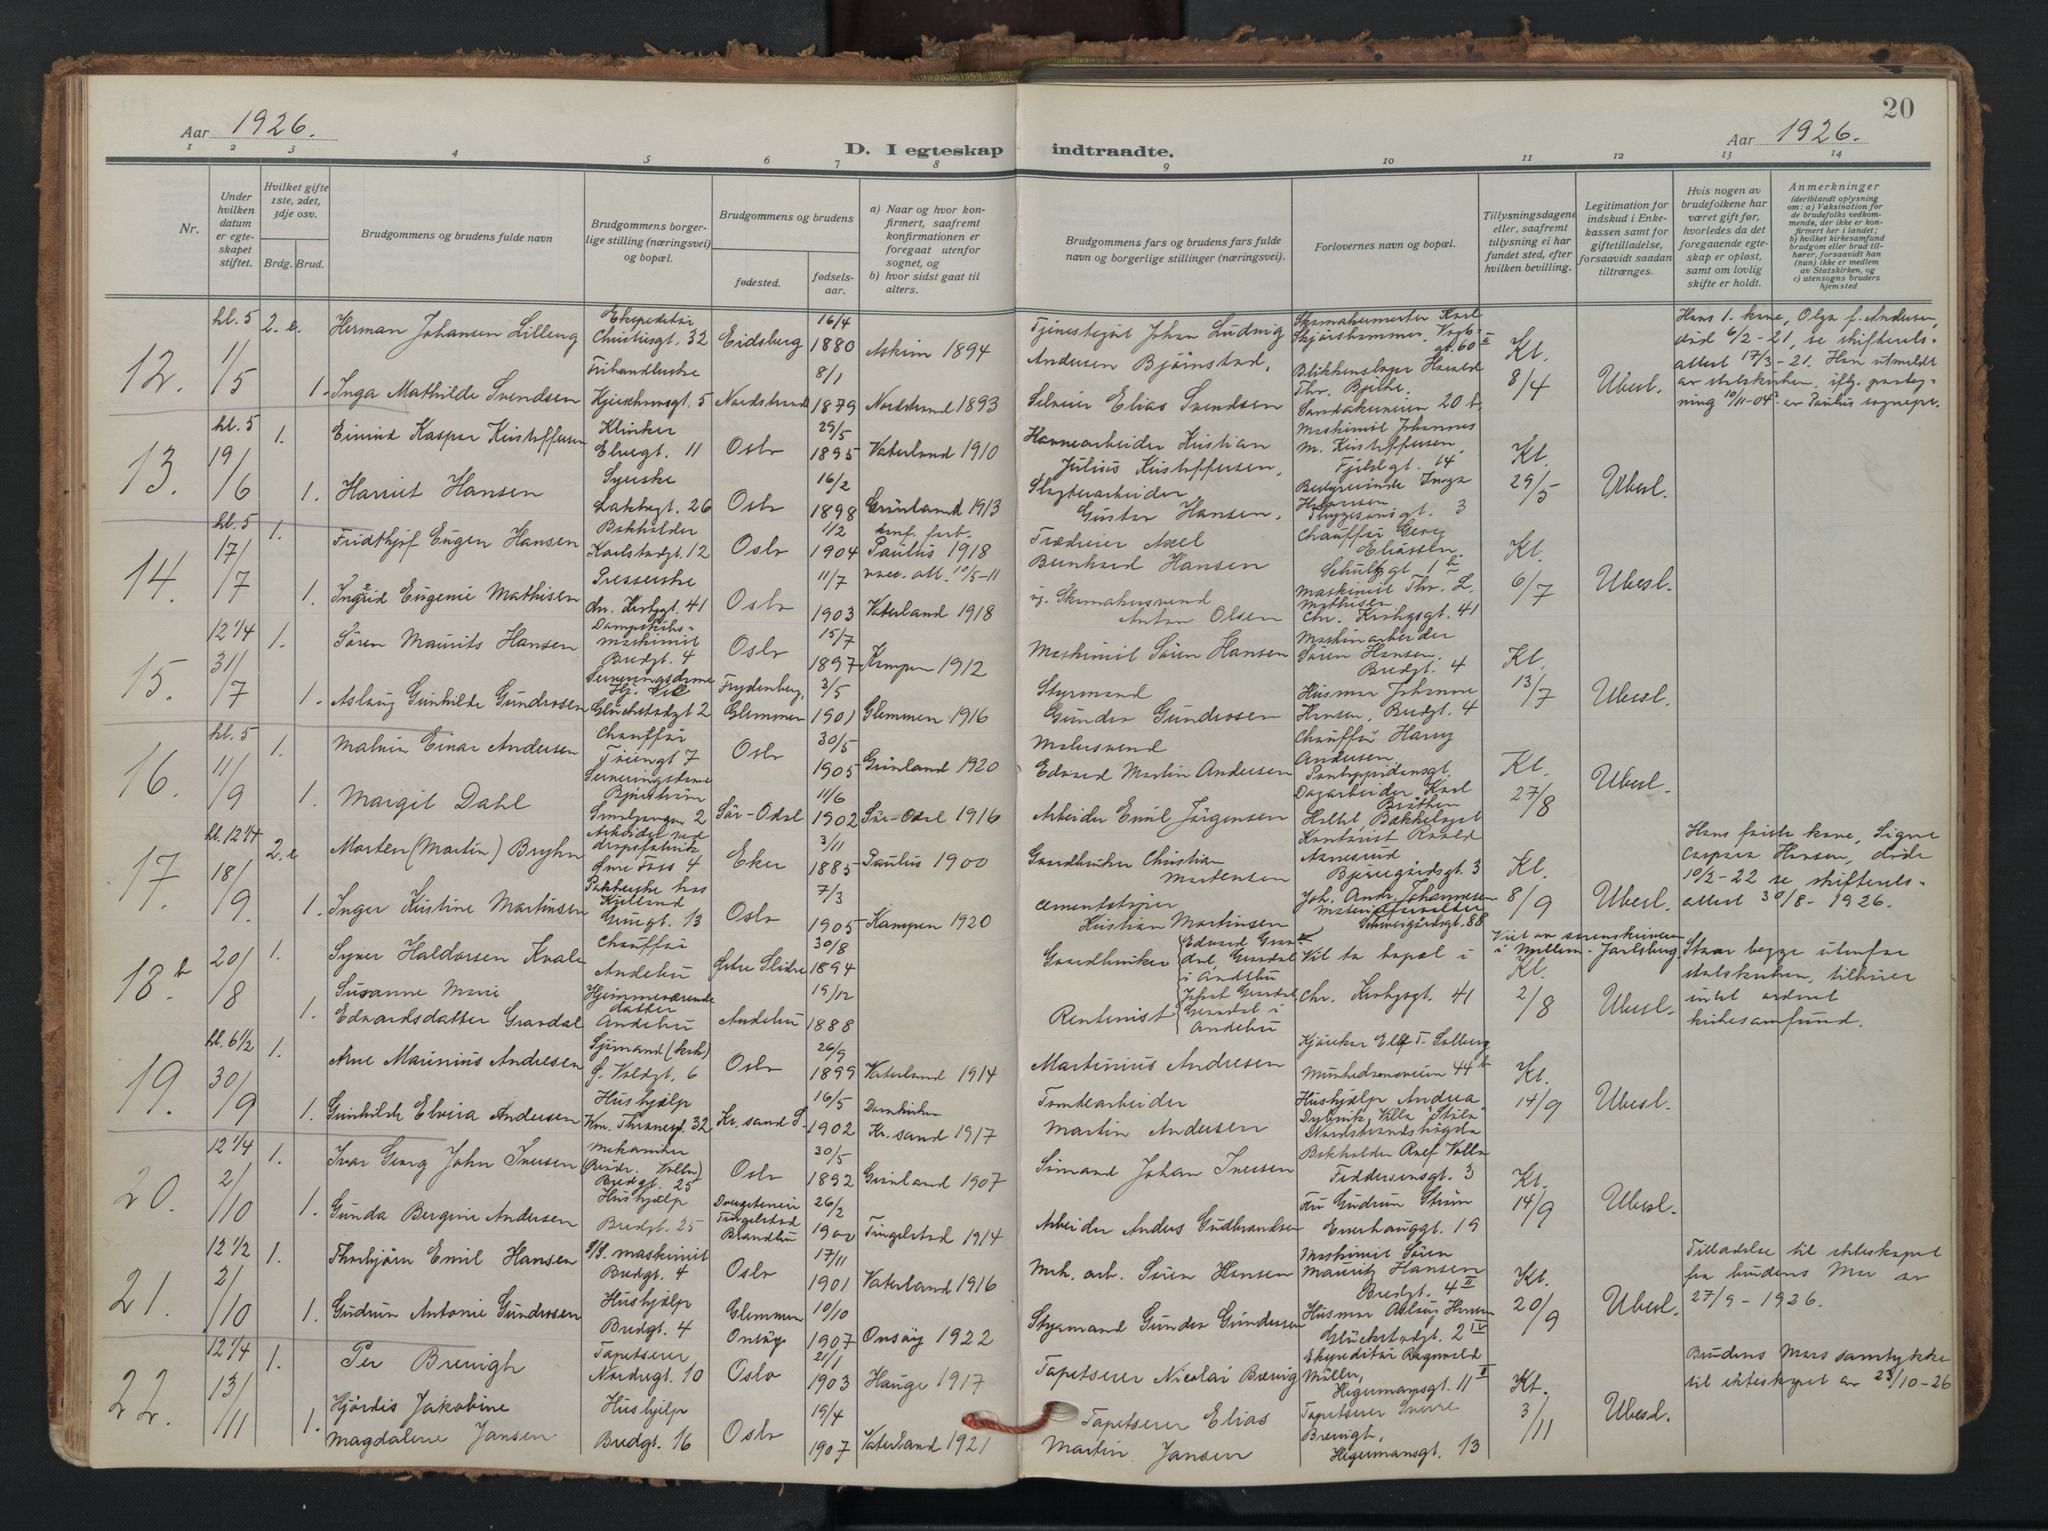 20
Aar 1926.
Aar 1926.
D. I egteskap indtraadte.
1 2 3 4 5 6 7 8 9 10 11 12 13 14
Nr.
Under hvilken datum er egteskapet stiftet.
Hvilket gifte 1ste, 2det, 3dje osv.
Brdg. Brud.
Brudgommens og brudens fulde navn
Brudgommens borgerlige stilling (næringsvei) og bopæl.
Brudgommens og brudens
fødested.
fødselsaar.
a) Naar og hvor konfirmert, saafremt konfirmationen er foregaat utenfor sognet, og
b) hvor sidst gaat til alters.
Brudgommens fars og brudens fars fulde navn og borgerlige stillinger (næringsvei).
Forlovernes navn og bopæl.
Tillysningsdagene eller, saafremt tillysning ei har fundet sted, efter hvilken bevilling.
Legitimation for indskud i Enkekassen samt for giftetilladelse, forsaavidt saadan tiltrænges.
Hvis nogen av brudefolkene har været gift før, hvorledes da det foregaaende egteskap er opløst, samt om lovlig skifte er holdt.
Anmerkninger (deriblandt oplysning om: a) Vaksination for de brudefolks vedkommende, der ikke er konfirmert her i landet; b) hvilket kirkesamfund brudgom eller brud tilhører, forsaavidt han (hun) ikke er medlem av Statskirken, og c) utensogns bruders hjemsted
12. kl. 5 1/5 2. e. Herman Johansen Lilleng Ekspeditør Christiesgt. 32 Eidsberg 16/4 1880 Askim 1894 Johan Ludvig Andersen Bjørnstad, Kl. 8/4 Ubesl.
Hans 1. kone, Olga f. Andersen, død 6/2-21, se skifteretsattest 17/3-21. Han utmeldt av statskirken
1. Inga Mathilde Svendsen 8/1 1879 Nordstrand 1893 Elias Svendsen
13. kl. 5 19/6 1. Kaspar Kristoffersen Elvegt. 11 Oslo 29/5 1895 Vaterland 1910 Havnearbeider Kristian Julius Kristoffersen, Maskinist Johannes M. Kristoffersen Fjeldgt. 14 Kl. 29/5 Ubesl.
1. Harriet Hansen Syerske Lakkegt. 26 Oslo 16/2 1898 Grønland 1913 Slagteriarbeider Gustav Hansen.
14. kl. 5 17/7 1. Fridthjof Eugen Hansen Bokholder Karlstadgt. 12 Oslo 1/2 1904 Paulus 1918 Axel Bernhard Hansen Chauffør Georg Eliassen. Kl. 6/7 Ubesl.
1. Ingrid Eugenie Mathisen Presserske Chr. Krohgsgt. 41 Oslo 11/7 1903 Vaterland 1918 Anton Olsen Maskinist Thr. L. Mathisen Chr. Krohgsgt. 41
15. 12 1/4 31/7 1. Søren Maurits Hansen Dampskibsmaskinist Bredgt. 4 Oslo 15/7 1897 Kampen 1912 Maskinist Søren Hansen Maskinarbeider Søren Hansen, Bredgt. 4 Kl. 13/7 Ubesl.
1. Aslaug Gunhilde Gundrosen Glückstadgt 2 Frydenberg, Glemmen 3/5 1901 Glemmen 1916 Styrmand Gunder Gundrosen Husmor Johanne Hansen, Bredgt. 4
16. kl. 5 11/9 1. Malvin Einar Andersen Chauffør Oslo 30/5 1905 Grønland 1920 Malersvend Edvard Martin Andersen Chauffør Harry Andersen Kl. 27/8 Ubesl.
1. Margit Dahl Serveringsdame Smalgangen 2 Sør-Odal 11/6 1902 Sør-Odal 1916 Arbeider Emil Jørgensen Karl Bråthen
17. kl. 12 1/4 18/9. 2. e Morten (Martin) Bryhn Øvre Foss 4 Eker 3/11 1885 Paulus 1900 Gaardbruker Christian Mortensen Kl. 8/9 Ubesl.
Hans første kone, Signe Caspara Hansen, døde 10/2-22 se skifteretsattest 30/8-1926.
1. Inger Kristine Martinsen 13 Oslo 7/3 1905 Kampen 1920 Cementstøper Kristian Martinsen Joh. Andr. Johannesen Schweigårdsgt. 88
18b 20/8 1. Syver Haldorsen Kvale Chauffør Andebu Østre Slidre 30/8 1894 Gaardbruker Vil ta bopæl i Chr. Krohgsgt. 41 Kl. 2/8 Ubesl.
Staar begge utenfor statskirken, tilhører intet ordnet kirkesamfund.
1. Susanne Marie Edvardsdatter Gravdal Hjemmeværende datter Andebu Andebu 19/12 1888 Rentenist
19. kl. 6 1/2 30/9 1. Arne Andresen Sjømand Oslo 26/9 1899 Vaterland 1914 Martinius Andresen Kl. 14/9 Ubesl.
1. Gunhilde Elvira Andersen Hushjælp 32 Kr. sand S. 16/5 1902 Domkirken Kr. sand 1917 Tomtearbeider Martin Andersen Hushjælp Andrea
20. 12 1/4 2/10 1. Ivar Georg John Iversen Mekaniker Bredgt. 25 Oslo 30/5 1892 Grønland 1907 Sømand Johan Iversen Bokholder Feddersensgt. 3 Kl. 14/9 Ubesl.
1. Gunda Bergine Andersen Hushjælp Bredgt. 25 Tingelstad Brandbu 26/2 1900 Tingelstad 1914 Arbeider Anders Gudbrandsen Fru Gudrun Strøm Enerhauggt. 19
21. 12 1/2 2/10 1. Thorbjørn Emil Hansen maskinist Bredgt. 4 Oslo 17/11 1901 Vaterland 1916 Mek. arb. Søren Hansen Maskinist Søren Mauritz Hansen Bredgt. 4 II Kl. 20/9 Ubesl.
Tilladelse til ekteskapet fra brudens Mor av 27/9-1926.
1. Gudrun Antonie Gundrosen Hushjælp Bredgt. 4 Glemmen Onsøy 10/10 1907 Onsøy 1922 Styrmand Gunder Gundersen Husmor Aslaug Hansen Glückstadgt. 2 IV
22. 12 1/4 13/11 1. Per Brevigh Tapetserer Nordregt. 10 Oslo 21/1 1903 Hauge 1917 Tapetserer Nicolai Brevig Ekspeditør Ragnvald Møller, Hegermansgt. 11 Kl. 3/11 Ubesl.
Brudens Mors samtykke til ekteskapet av 23/10-26
1. Hjørdis Jakobine Magdalene Jansen. Hushjælp Bredgt. 16 Oslo 19/4 1907 Vaterland 1921 Tapetserer Elias Martin Jansen Tapetserer Sverre Brevigh, Hegermansgt. 13